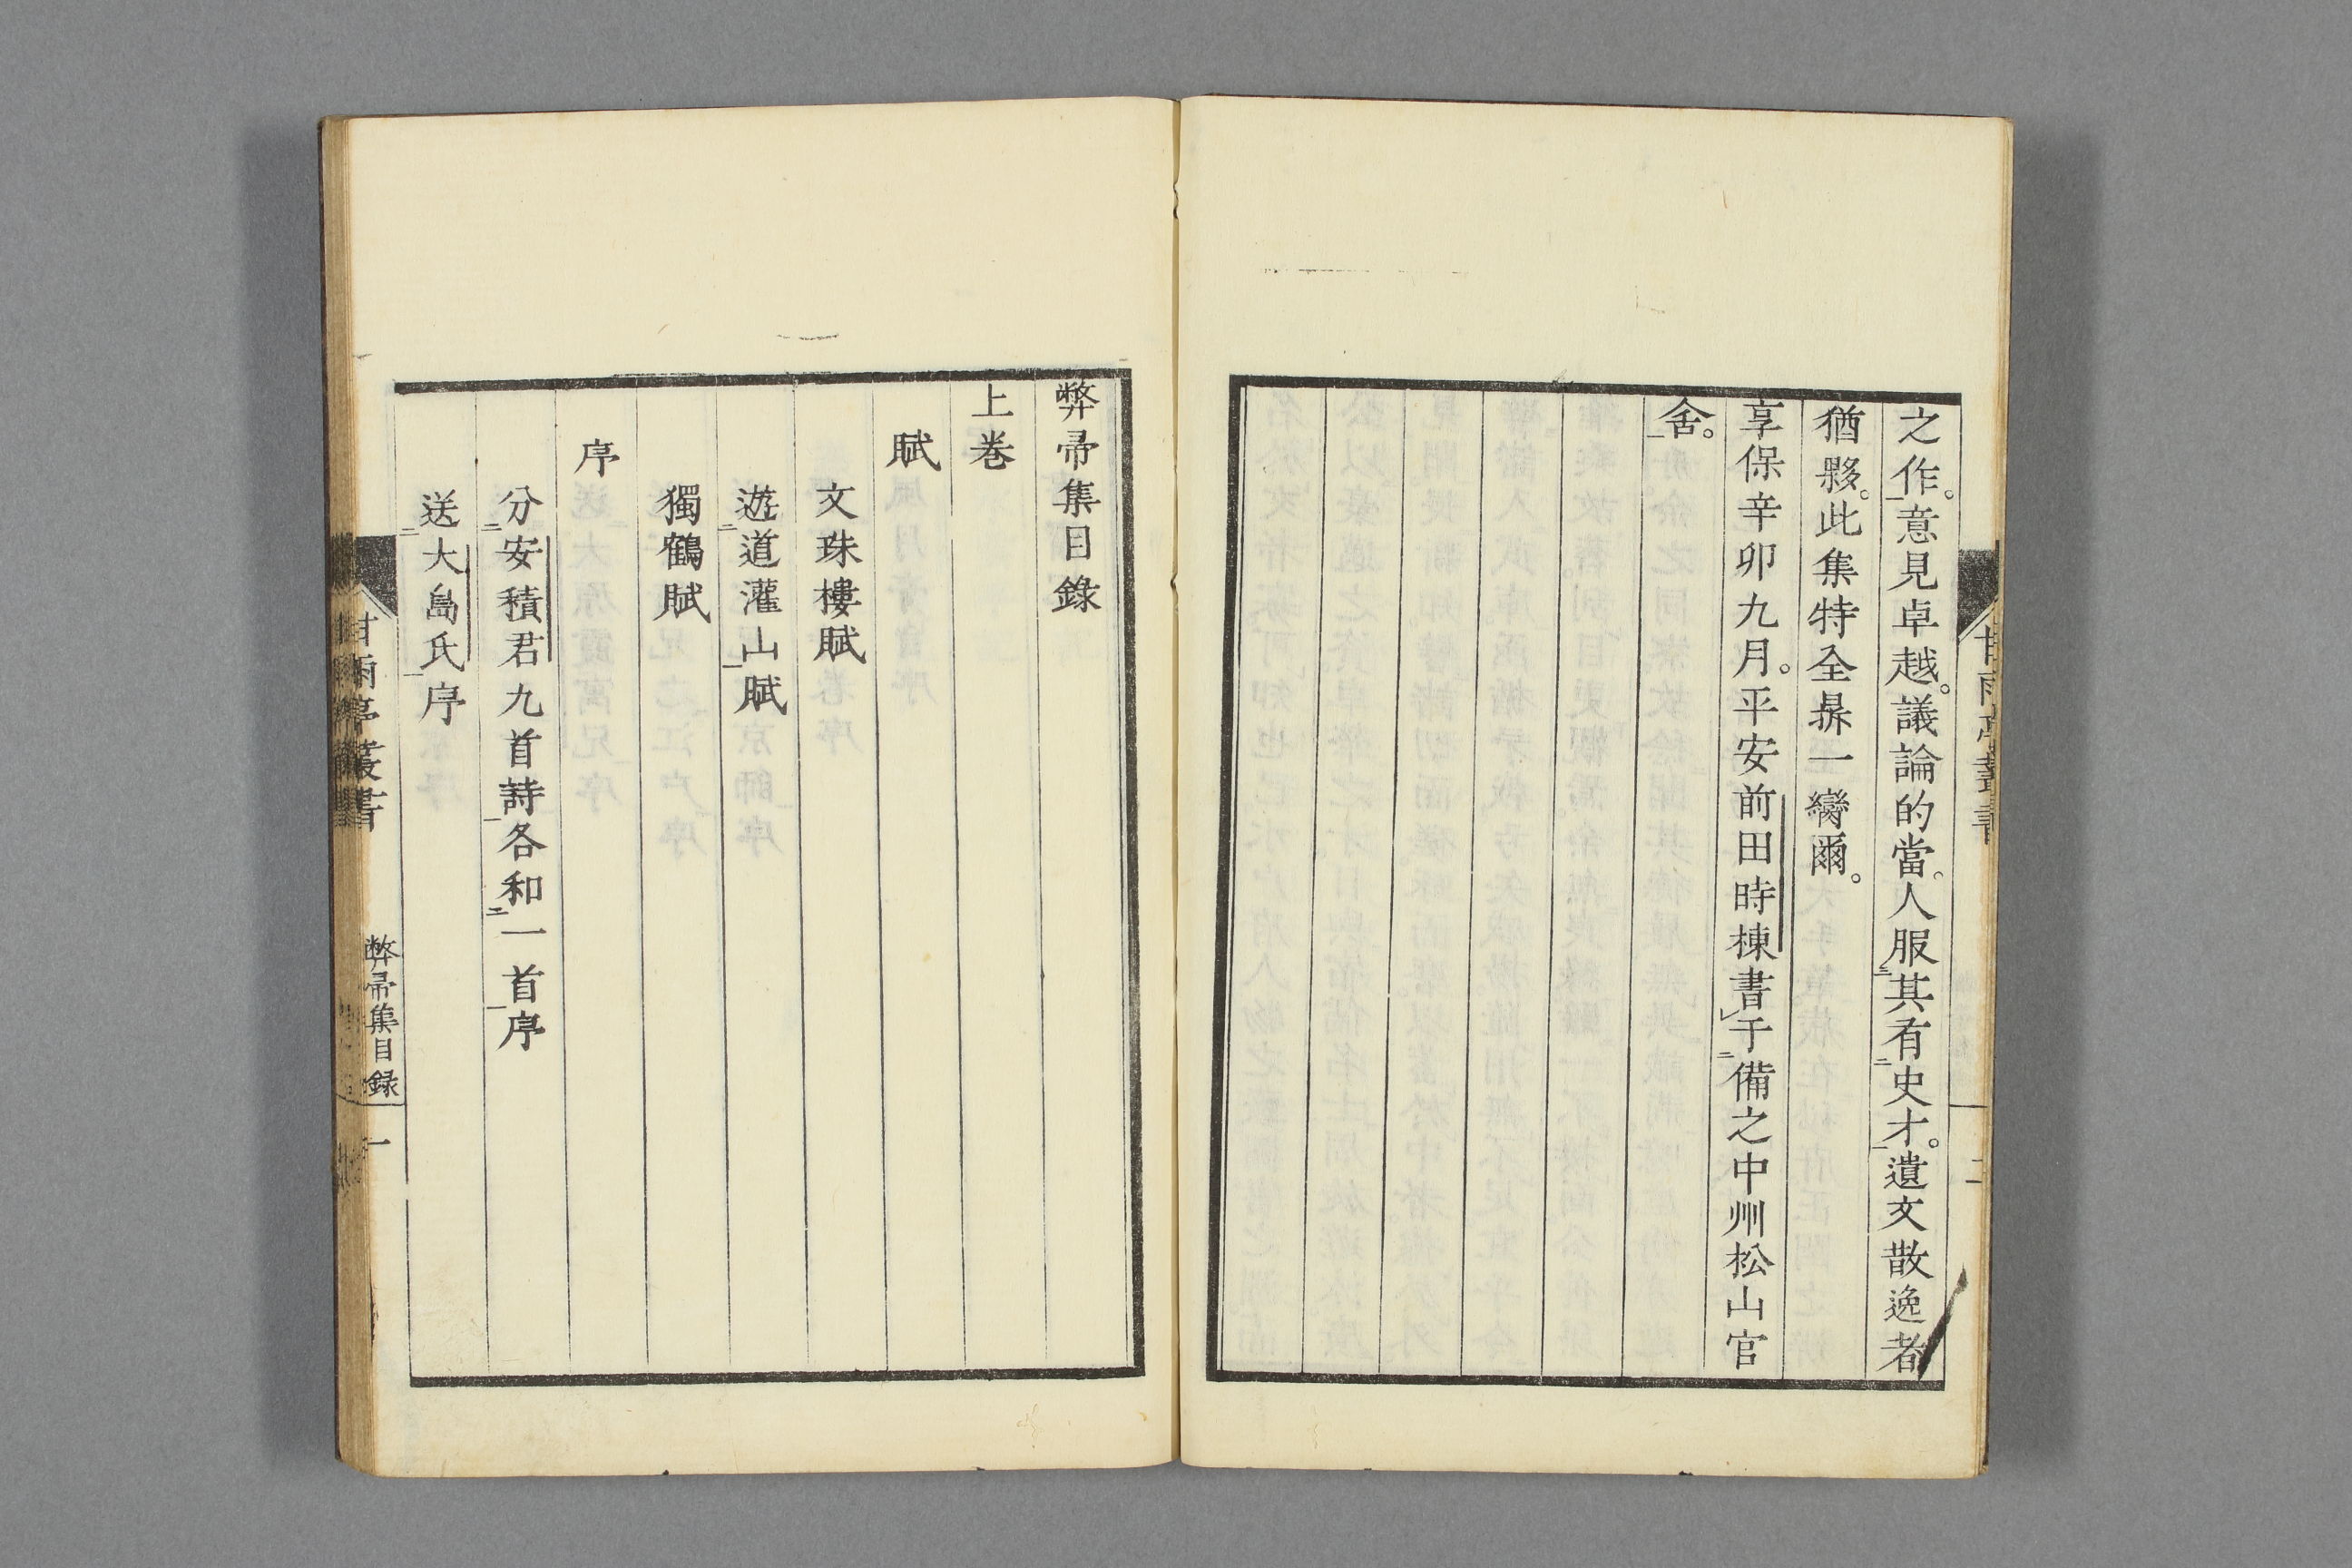 之作。意見卓越。議論的當。人服其有史才。遺文散逸者
猶夥。此集特全鼎一臠爾。
享保辛卯九月。平安前田時棟書于備之中州松山官
舍。
甘雨亭叢書
二
弊帚集目錄
上卷
賦
文珠樓賦
遊道灌山賦
獨鶴賦
序
分安積君九首詩各和一首序
送大島氏序
甘雨亭叢書
弊帚集目錄
一